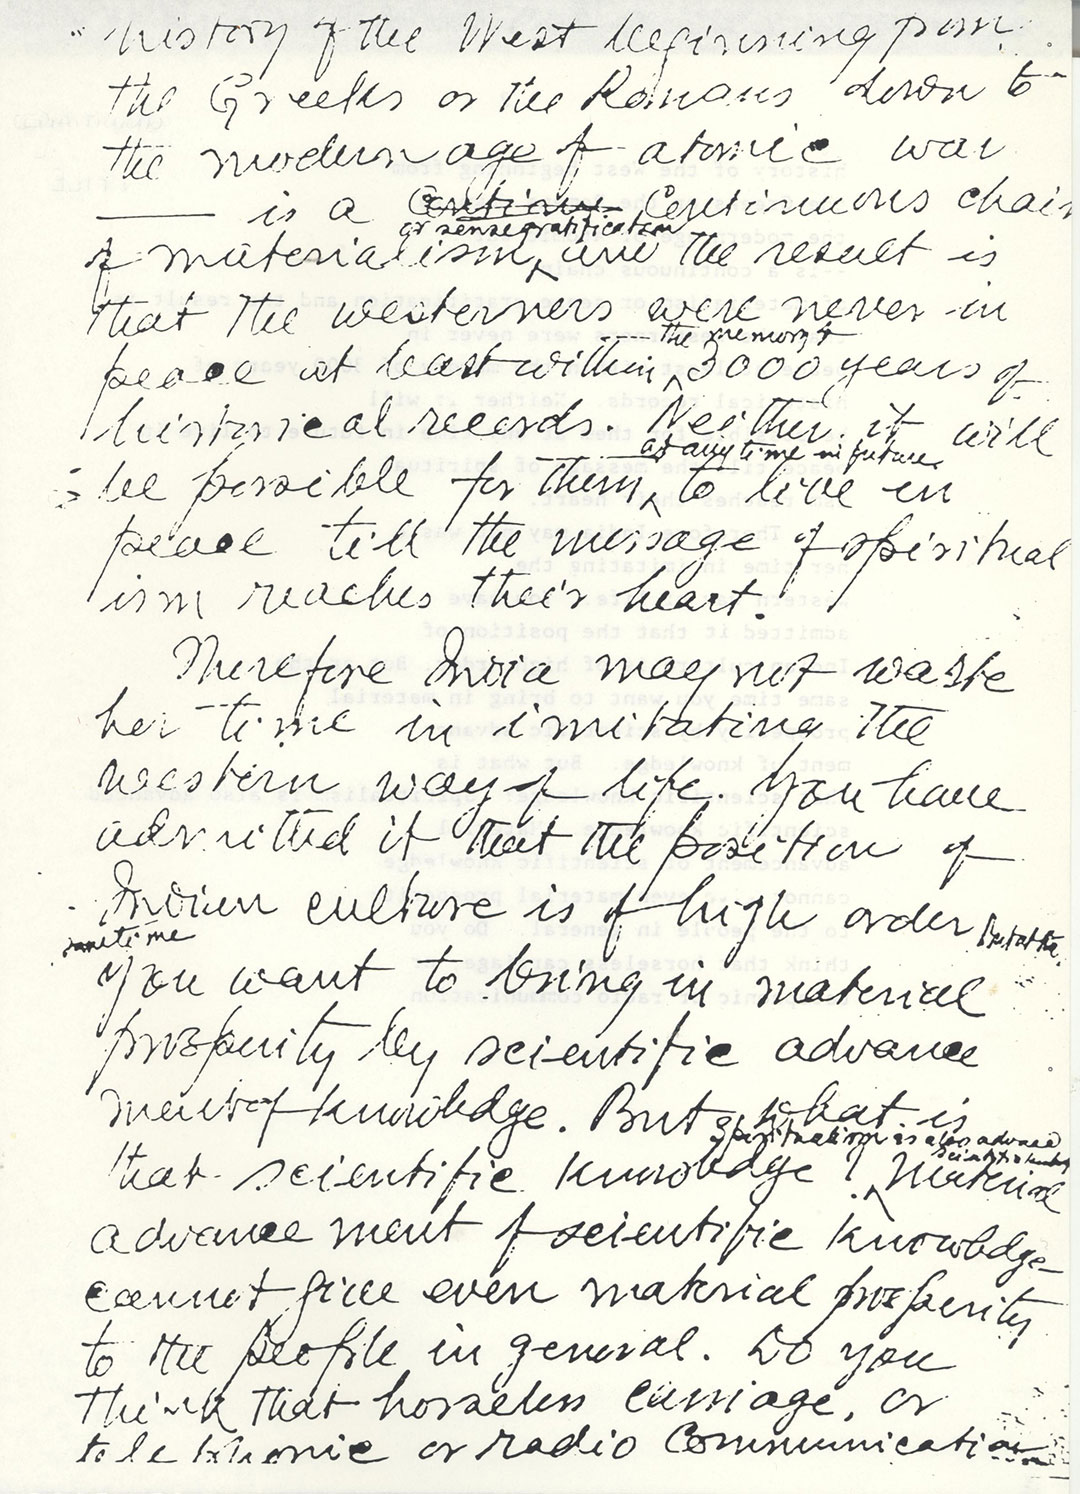 history of the West beginning from
the Greeks or the Romans down to
the modern age of atomic war
—— is a Continu Continuous chain
or sensegratification
of materialism, and the result is
that the westerners were never in
the memory of
peace at least within 3000 years of
historical records. Neither it will
at any time in future
be possible for them to live in
peace till the message of spiritual
ism reaches their heart.
Therefore India may not waste
her time in imitating the
western way of life. You have
admitted it that the position of
Indian culture is of high order But at the
same time
you want to bring in material
prosperity by scientific advance
ment of knowledge. But what is
spiritualism is also advance
scientific
that scientific knowledge? Material
advancement of scientific knowledge
cannot give even material prosperity
to the people in general. Do you
think that horseless carriage, or
telephonic or radio communication